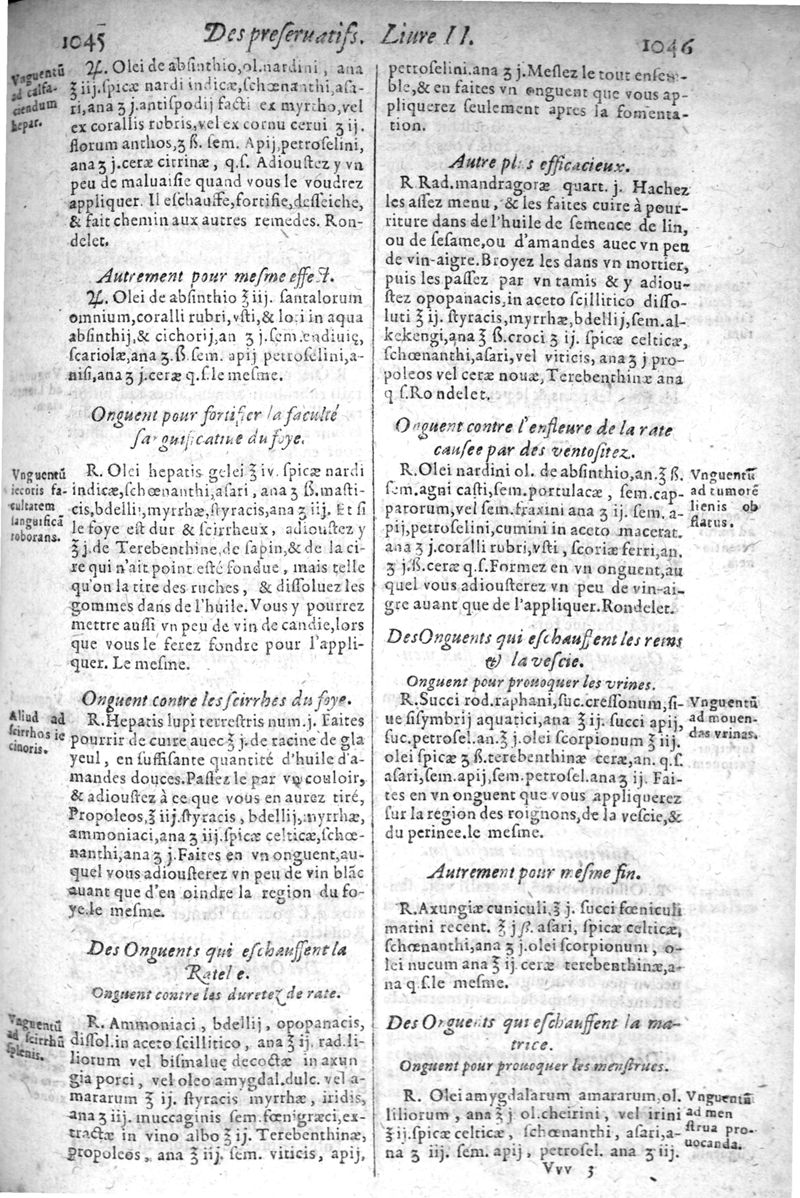 1045
Des preseruatifs. Liure II.
1046
Vnguentũ
ad calfa-
ciendum
hepar.
♃. Olei de absinthio, ol. nardini, ana
℥ iij. spicæ nardi indicæ, schœnanthi, asa-
ri, ana ʒ j. antispodij facti ex myrrho, vel
ex corallis rubris, vel ex cornu cerui ʒ ij.
florum anthos, ʒ ß. sem. Apij, petroselini,
ana ʒ j. ceræ citrinæ, q.s. Adioustez y vn
peu de maluaisie quand vous le voudrez
appliquer. Il eschauffe, fortifie, desseiche,
& fait chemin aux autres remedes. Ron-
delet.
Autrement pour mesme effect.
♃. Olei de absinthio ℥ iij. santalorum
omnium, coralli rubri, vsti, & loti in aqua
absinthij, & cichorij, an ʒ j. sem. endiuię,
scariolæ, ana ʒ. ß. sem. apij petroselini, a-
nisi, ana ʒ j. ceræ q.s. le mesme.
Onguent pour fortifier la faculté
sanguificatiue du foye.
Vnguentũ
iecoris fa-
cultatem
sanguificã
roborans.
R. Olei hepatis gelei ℥ iv. spicæ nardi
indicæ, schœnanthi, asari, ana ʒ ß. masti-
cis, bdelli, myrrhæ, styracis, ana ʒ iij. Et si
le foye est dur & scirrheux, adioustez y
℥ j. de Terebenthine, de sapin, & de la ci-
re qui n'ait point esté fondue, mais telle
qu'on la tire des ruches, & dissoluez les
gommes dans de l'huile. Vous y pourrez
mettre aussi vn peu de vin de candie, lors
que vous le ferez fondre pour l'appli-
quer. Le mesme.
Onguent contre les scirrhes du foye.
Aliud ad
scirrhos ie
cinoris.
R. Hepatis lupi terrestris num. j. Faites
pourrir de cuire auec ℥ j. de racine de gla
yeul, en suffisante quantité d'huile d'a-
mandes douces. Passez le par vn couloir,
& adioustez à ce que vous en aurez tiré,
Propoleos, ℥ iij. styracis, bdellij, myrrhæ,
ammoniaci, ana ʒ iij. spicæ celticæ, schœ-
nanthi, ana ʒ j. Faites en vn onguent, au-
quel vous adiousterez vn peu de vin blãc
auant que d'en oindre la region du fo-
ye. le mesme.
Des Onguents qui eschauffent la
Ratele.
Onguent contre les duretez de rate.
Vnguentũ
ad scirrhũ
splenis.
R. Ammoniaci, bdellij, opopanacis,
dissol. in aceto scillitico, ana ℥ ij. rad. li-
liorum vel bismaluę decoctæ in axun
gia porci, vel oleo amygdal. dulc. vel a-
mararum ℥ ij. styracis myrrhæ, iridis,
ana ʒ iij. muccaginis sem. fœnigræci, ex-
tractæ in vino albo ℥ ij. Terebenthinæ,
propoleos, ana ℥ iij. sem. viticis, apij,
petroselini. ana ʒ j. Meslez le tout ensem-
ble, & en faites vn onguent que vous ap-
pliquerez seulement apres la fomenta-
tion.
Autre plus efficacieux.
R Rad. mandragoræ quart. j. Hachez
les assez menu, & les faites cuire à pour-
riture dans de l'huile de semence de lin,
ou de sesame, ou d'amandes auec vn peu
de vin-aigre. Broyez les dans vn mortier,
puis les passez par vn tamis & y adiou-
stez opopanacis, in aceto scillitico disso-
luti ℥ ij. styracis, myrrhæ, bdellij, sem. al-
kekengi, ana ℥ ß. croci ʒ ij. spicæ celticæ,
schœnanthi, asari, vel viticis, ana ʒ j pro-
poleos vel ceræ nouæ, Terebenthinæ ana
q.s. Rondelet.
Onguent contre l'enfleure de la rate
causee par des ventositez.
R. Olei nardini ol. de absinthio, an. ℥ ß.
sem. agni casti, sem. portulacæ, sem. cap-
parorum, vel sem. fraxini ana ʒ ij. sem. a-
pij, petroselini, cumini in aceto macerat.
ana ʒ j. coralli rubri, vsti, scoriæ ferri, an.
ʒ j. ß. ceræ q.s. Formez en vn onguent, au
quel vous adiousterez vn peu de vin-ai-
gre auant que de l'appliquer. Rondelet.
Vnguentũ
ad tumorẽ
lienis ob
flatus.
Des Onguents qui eschauffent les reins
& la vescie.
Onguent pour prouoquer les vrines.
R. Succi rod. raphani, suc. cressonum, si-
ue sisymbrij aquatici, ana ℥ ij. succi apij,
suc. petrosel. an. ℥ j. olei scorpionum ℥ iij.
olei spicæ ʒ ß. terebenthinæ ceræ, an. q.s.
asari, sem. apij, sem. petrosel. ana ʒ ij. Fai-
tes en vn onguent que vous appliquerez
sur la region des roignons, de la vescie, &
du perinee. le mesme.
Vnguentũ
ad mouen-
das vrinas.
Autrement pour mesme fin.
R. Axungiæ cuniculi, ℥ j. succi fœniculi
marini recent. ℥ j ß. asari, spicæ celticæ,
schœnanthi, ana ʒ j. olei scorpionum, o-
lei nucum ana ℥ ij. ceræ terebenthinæ, a-
na q.s. le mesme.
Des Onguents qui eschauffent la ma-
trice.
Onguent pour prouoquer les menstrues.
R. Olei amygdalarum amararum, ol.
liliorum, ana ℥ j ol. cheirini, vel irini
℥ ij. spicæ celticæ, schœnanthi, asari, a-
na ʒ iij. sem. apij, petrosel. ana ʒ iij.
Vnguentũ
ad men
strua pro-
uocanda.
Vvv 3